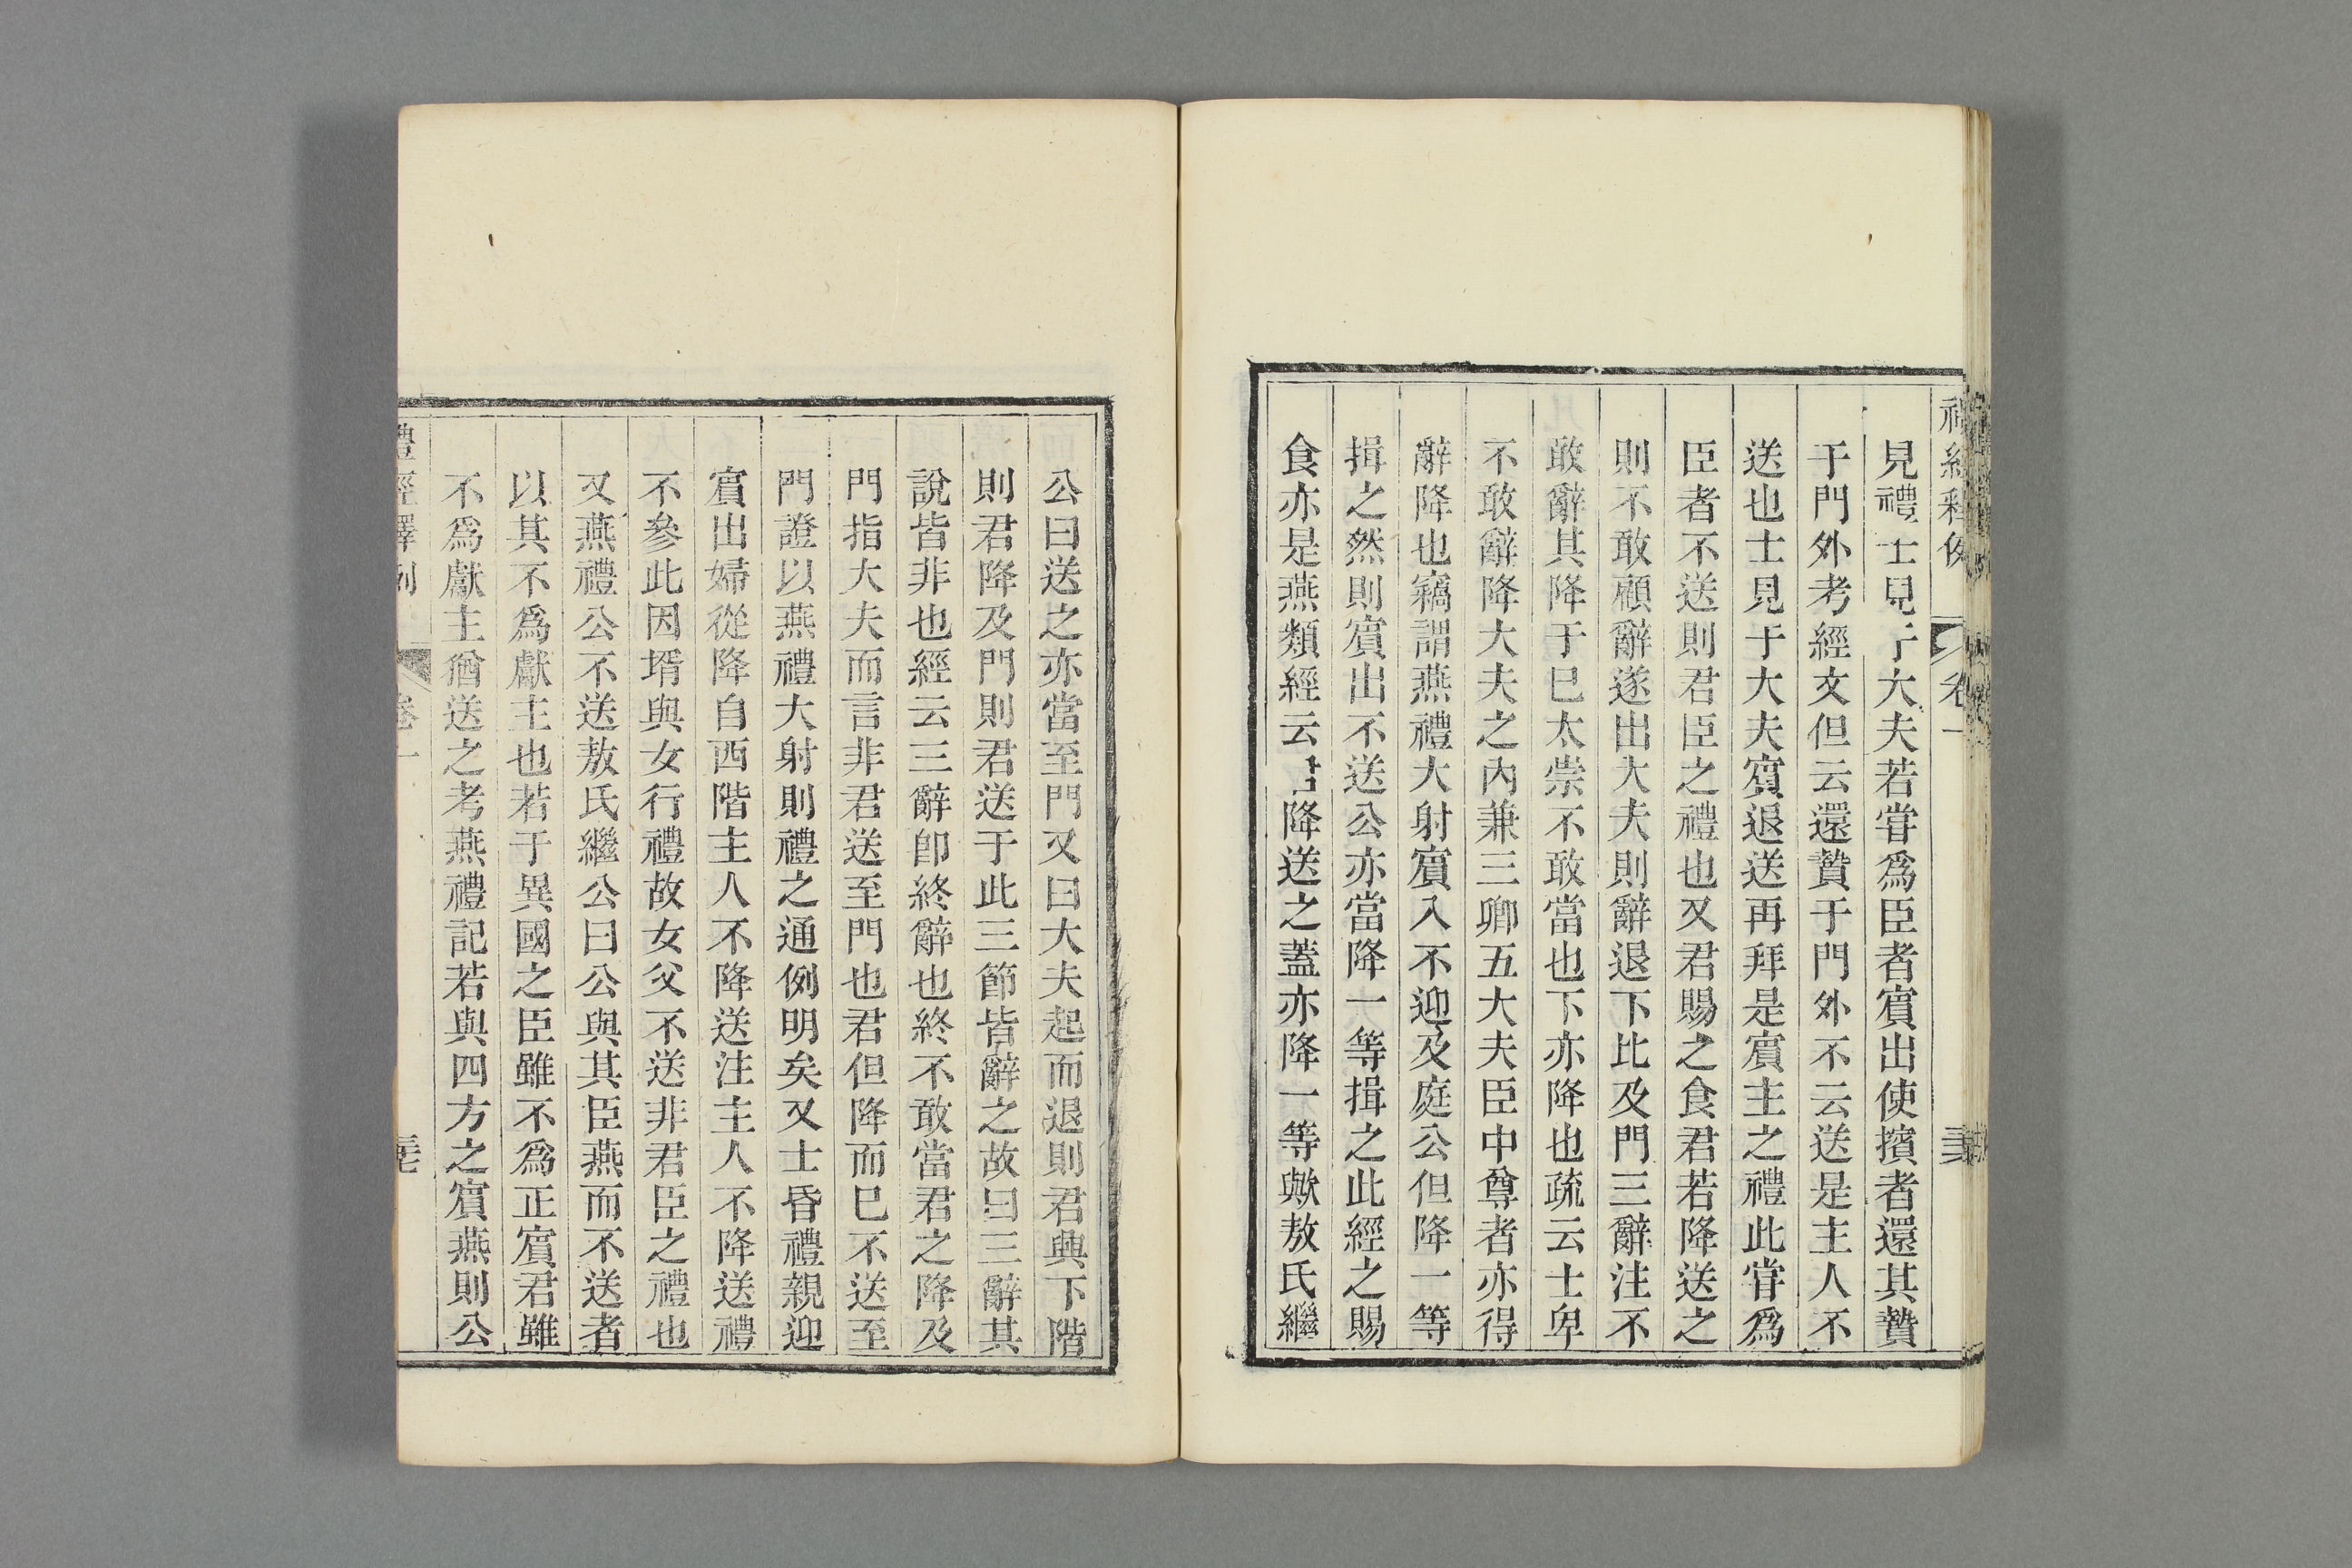 禮經釋例 卷一
見禮士見于大夫若甞爲臣者賔出使擯者還其贄
于門外考經文但云還贄于門外不云送是主人不
送也士見于大夫賔退送再拜是賔主之禮此甞爲
臣者不送則君臣之禮也又君賜之食君若降送之
則不敢顧辭遂出大夫則辭退下比及門三辭注不
敢辭其降于巳太崇不敢當也下亦降也疏云士卑
不敢辭降大夫之內兼三卿五大夫臣中尊者亦得
辭降也竊謂燕禮大射賔入不迎及庭公但降一等
揖之然則賔出不送公亦當降一等揖之此經之賜
食亦是燕類經云君降送之蓋亦降一等歟敖氏繼
公曰送之亦當至門又曰大夫起而退則君與下階
則君降及門則君送于此三節皆辭之故曰三辭其
說皆非也經云三辭卽終辭也終不敢當君之降及
門指大夫而言非君送至門也君但降而巳不送至
門證以燕禮大射則禮之通例明矣又士昏禮親迎
賔出婦從降自西階主人不降送注主人不降送禮
不參此因壻與女行禮故女父不送非君臣之禮也
又燕禮公不送敖氏繼公曰公與其臣燕而不送者
以其不爲獻主也若于異國之臣雖不爲正賔君雖
不爲獻主猶送之考燕禮記若與四方之賔燕則公
禮經釋例 卷一